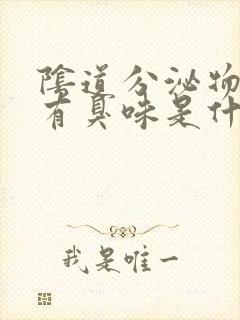 陰道分泌物
有臭味是什
我是唯一